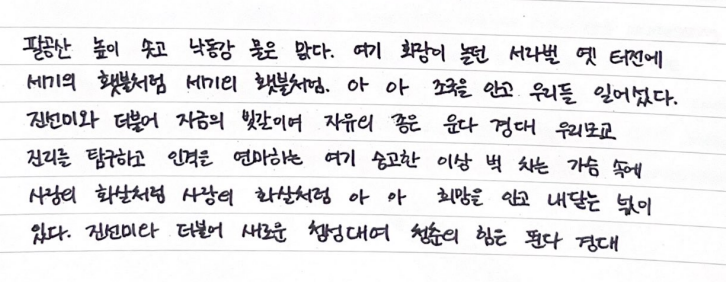 팔공산 높이 솟고 낙동강 물은 맑다. 여기 화랑이 놀던 서라벌 옛 터전에
세기의 횃불처럼 세기의 횃불처럼. 아 아 조국을 안고 우리들 일어섰다.
진선미와 더불어 자금의 빛깔이여 자유의 종은 운다 경대 우리모교
진리를 탐구하고 인격은 연마하는 여기 숭고한 이상 벅 차는 가슴 속에
사랑의 화살처럼 사랑의 화살처럼 아 아 희망을 안고 내닫는 넋이
있다. 진선미와 더불어 새로운 첨성대여 청춘의 힘은 뛴다 경대